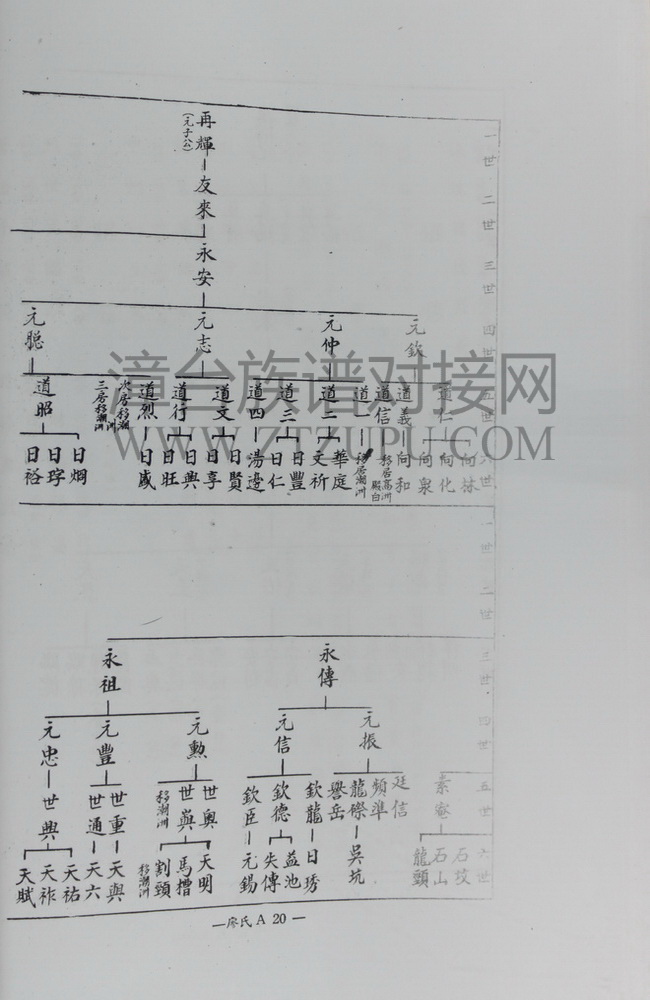 一世
二世
三世
四世
五世
六世
再輝
(元子八)
友來
永安
元欽
元仲
元志
元聰
道仁
道義
道信
移居高洲
殿白
道一
移居潮洲
道二
道三
道四
道文
道行
道烈
次房移潮洲
三房移潮洲
道昭
向林
向化
向泉
向和
華庭
文祈
日豐
日仁
湯邊
日賢
日享
日興
日旺
日盛
日烱
日琈
日裕
漳台族谱对接网
WWW.ZTZUPU.COM
一世
二世
三世
四世
五世
六世
永傳
永祖
元振
元信
元勲
元豐
元忠
素菴
廷信
頻準
龍際
譽岳
欽龍
欽德
欽臣
世奧
世與
移潮洲
世重
世通
世興
石坟
石山
龍頸
吳坑
日琇
益池
失傳
元錫
天明
馬撍
割頸
移潮洲
天與
天六
天祐
天祚
天賦
—廖氏 A 20—